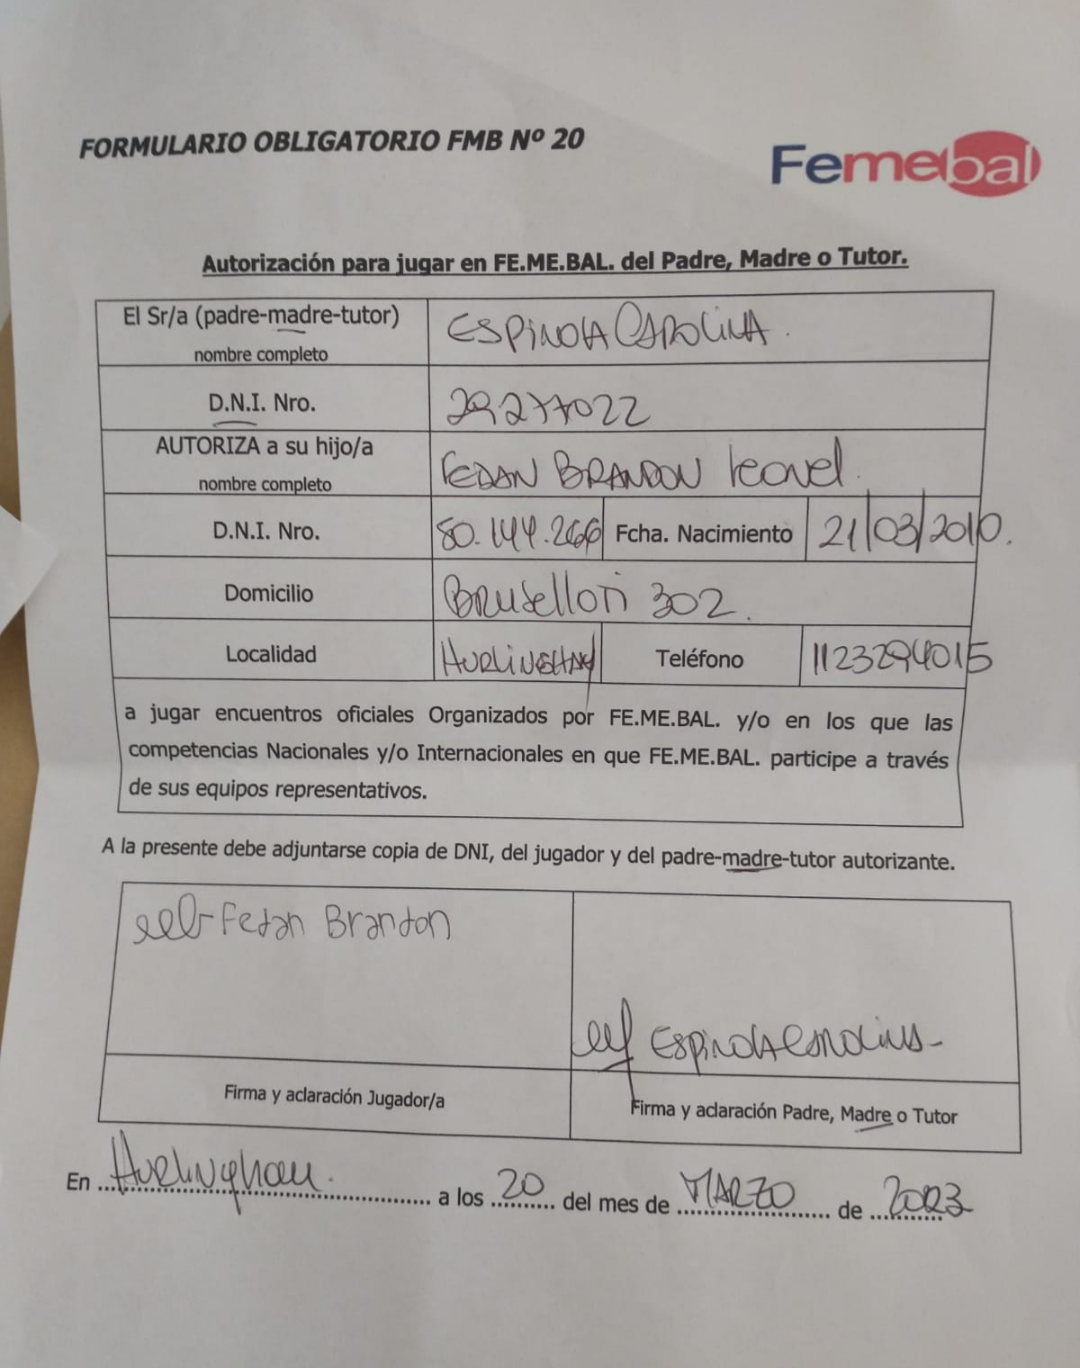 FORMULARIO OBLIGATORIO FMB Nº 20
Femebal
Autorización para jugar en FE.ME.BAL. del Padre, Madre o Tutor.
El Sr/a (padre-madre-tutor) nombre completo ESPINOLA CAROLINA.
D.N.I. Nro. 29277022
AUTORIZA a su hijo/a nombre completo FEDAN BRANDON Leonel.
D.N.I. Nro. 50.144.266 Fcha. Nacimiento 21/03/2010.
Domicilio 302.
Localidad HURLINGHAM Teléfono 1123294015
a jugar encuentros oficiales Organizados por FE.ME.BAL. y/o en los que las
competencias Nacionales y/o Internacionales en que FE.ME.BAL. participe a través
de sus equipos representativos.
A la presente debe adjuntarse copia de DNI, del jugador y del padre-madre-tutor autorizante.
Fedan Brandon
Espinola Carolina
Firma y aclaración Jugador/a
Firma y aclaración Padre, Madre o Tutor
En Hurlingham. a los 20 del mes de MARZO de 2023